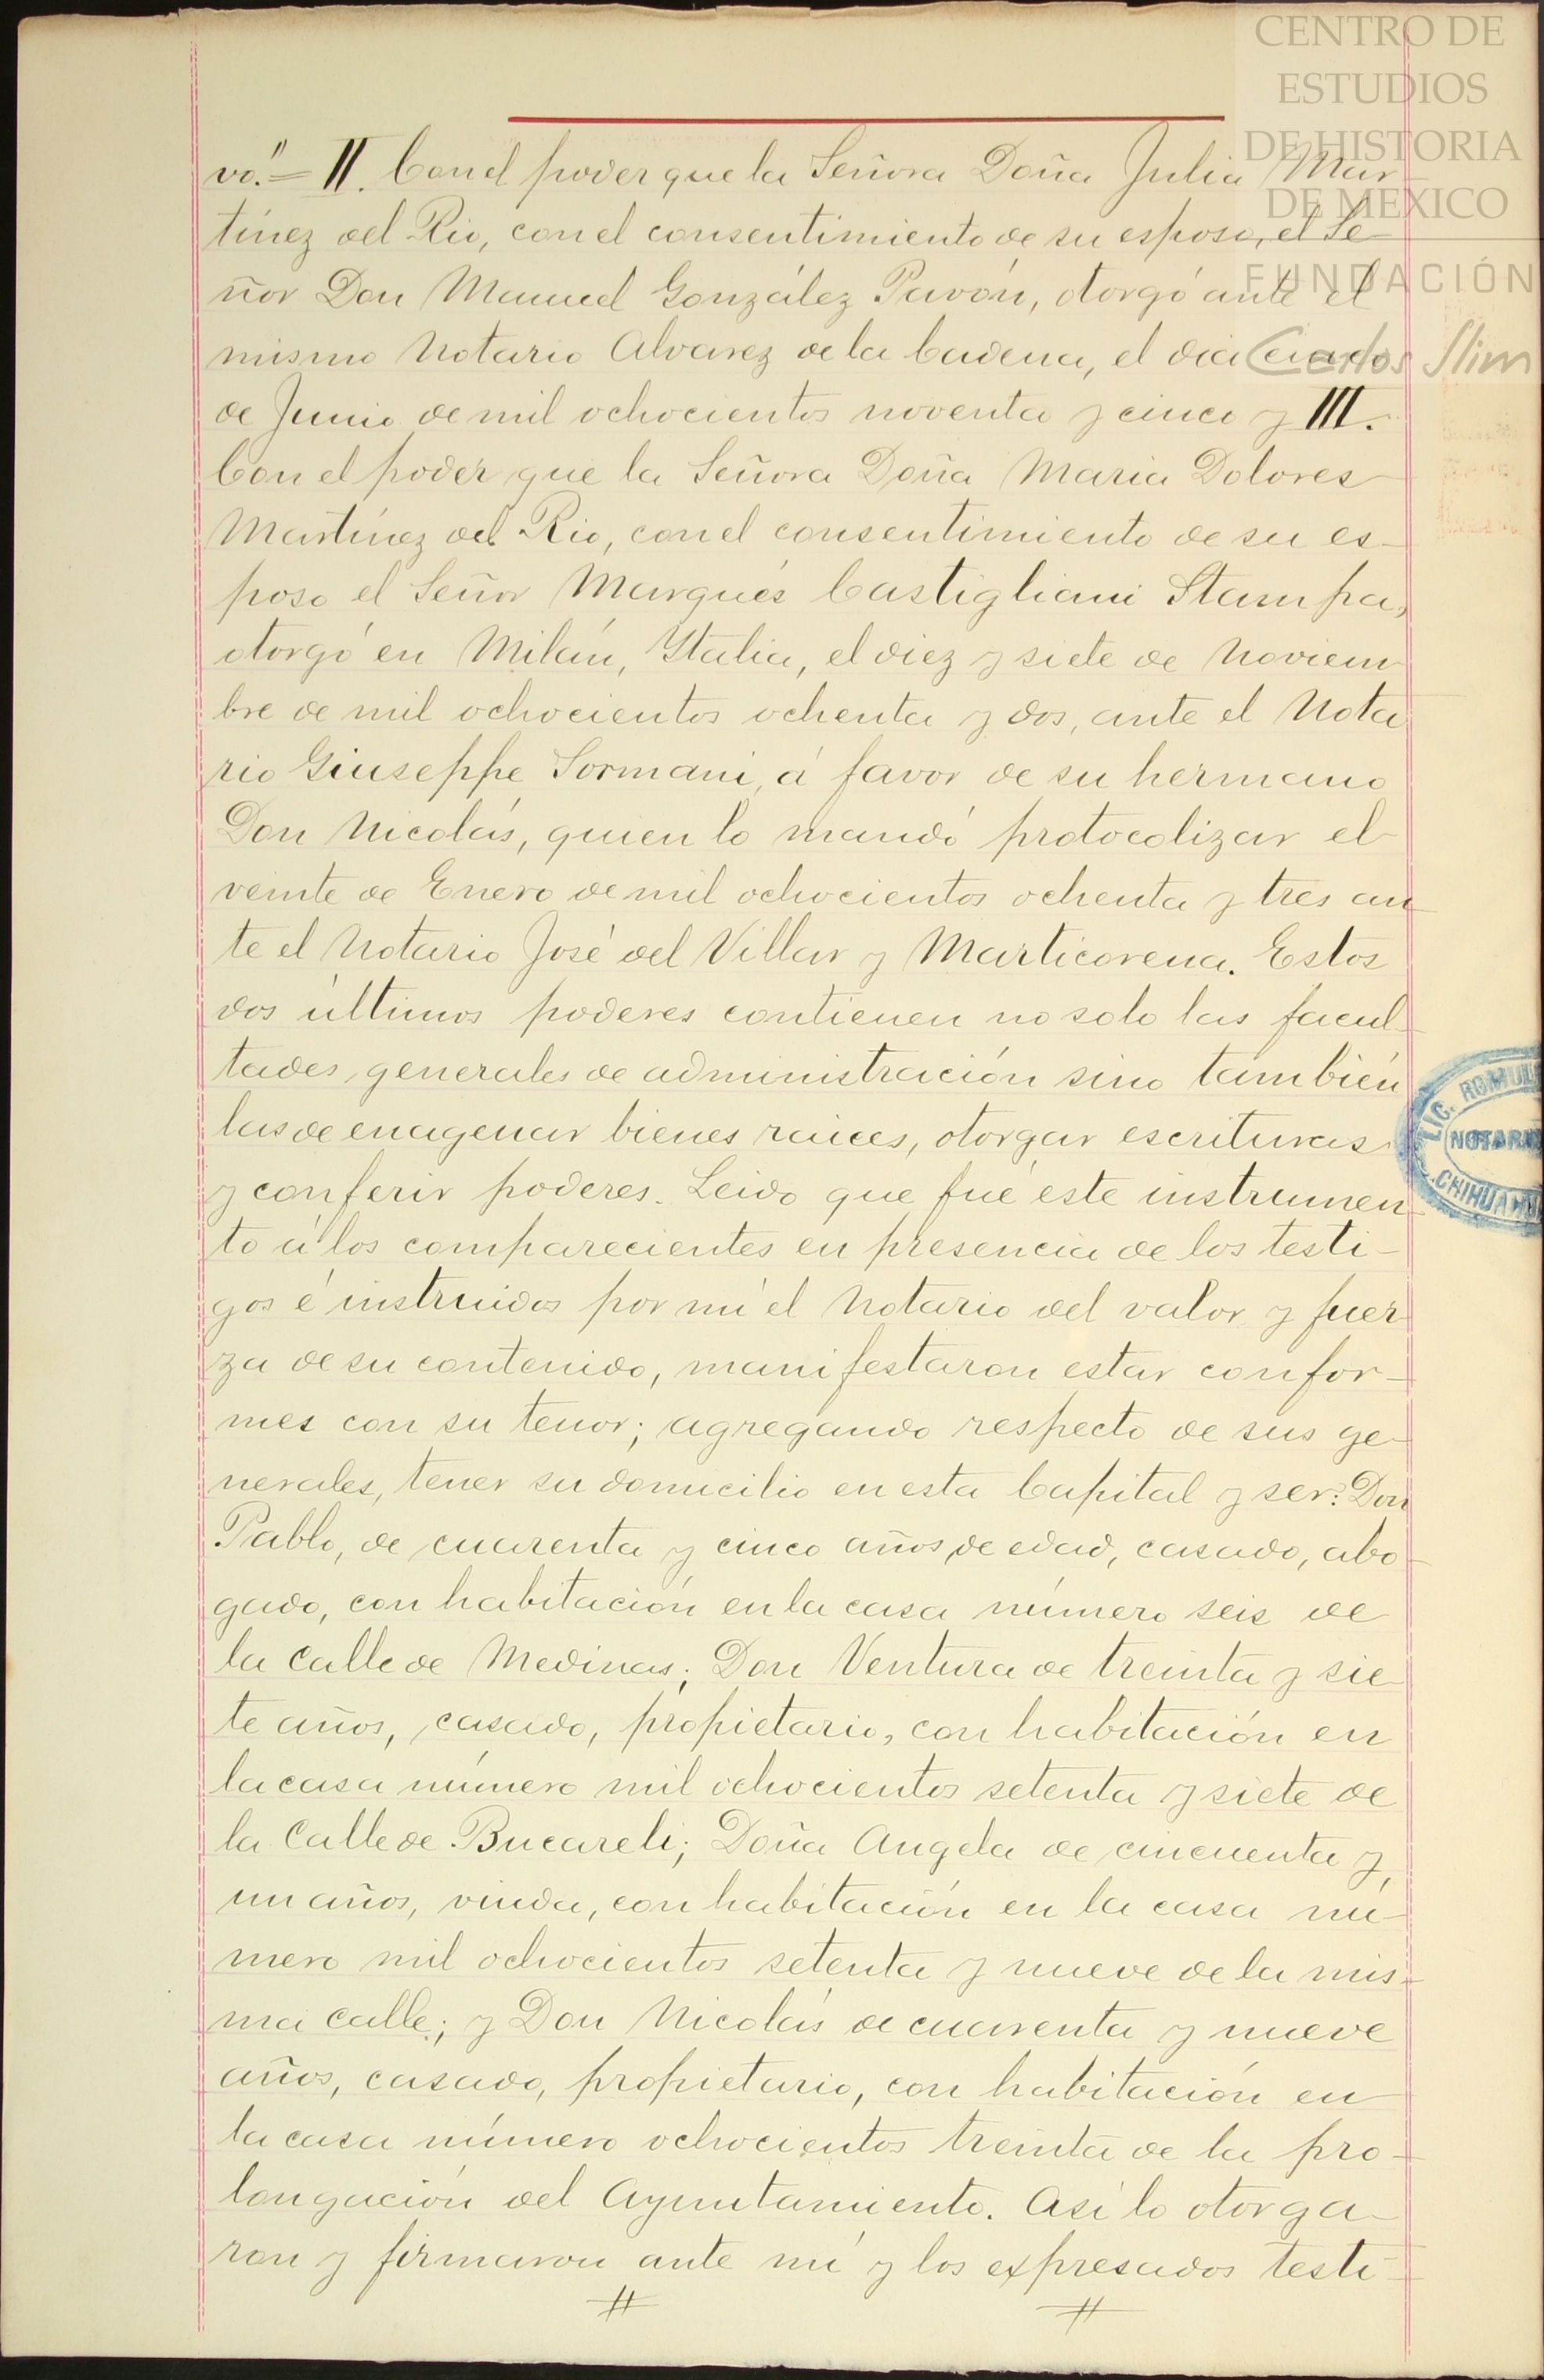 CENTRO DE
ESTUDIOS
DE HISTORIA
DE MEXICO
FUNDACIÓN
Carlos Slim
vo."=II. Con el poder que la Señora Doña Julia Mar
tínez del Rio, con el consentimiento de su esposo, el Se-
ñor Don Manuel González Pavón, otorgó ante el
mismo Notario Alvarez de la Cadena, el dia cinco
de Junio de mil ochocientos noventa y cinco y III.
Con el poder que la Señora Doña Maria Dolores
Martínez del Rio, con el consentimiento de su es-
poso el Señor Marqués Castigliani Stampa,
otorgó en Milán, Italia, el diez y siete de Noviem
bre de mil ochocientos ochenta y dos, ante el Nota
rio Giuseppe Sormani, á favor de su hermano
Don Nicolás, quien lo mandó protocolizar el
veinte de Enero de mil ochocientos ochenta y tres an
te el Notario José del Villar y Marticorena. Estos
dos últimos poderes contienen no solo las facul
tades generales de administración sino también
las de enagenar bienes raices, otorgar escrituras
y conferir poderes. Leido que fué este instrumen
to á los comparecientes en presencia de los testi-
gos é instruidos por mí el Notario del valor y fuer
za de su contenido, manifestaron estar confor-
mes con su tenor; agregando respecto de sus ge-
nerales, tener su domicilio en esta Capital y ser: Don
Pablo, de cuarenta y cinco años de edad, casado, abo-
gado, con habitación en la casa número seis de
la Calle de Medinas; Don Ventura de treinta y sie
te años, casado, propietario, con habitación en
la casa número mil ochocientos setenta y siete de
la Calle de Bucareli; Doña Angela de cincuenta y
un años, viuda, con habitación en la casa nú-
mero mil ochocientos setenta y nueve de la mis-
ma calle; y Don Nicolás de cuarenta y nueve
años, casado, propietario, con habitación en
la casa número ochocientos treinta de la pro-
longación del Ayuntamiento. Así lo otorga-
ron y firmaron ante mí y los expresados testi-
LIC. ROMUL
NOTAR
CHIHUAHU